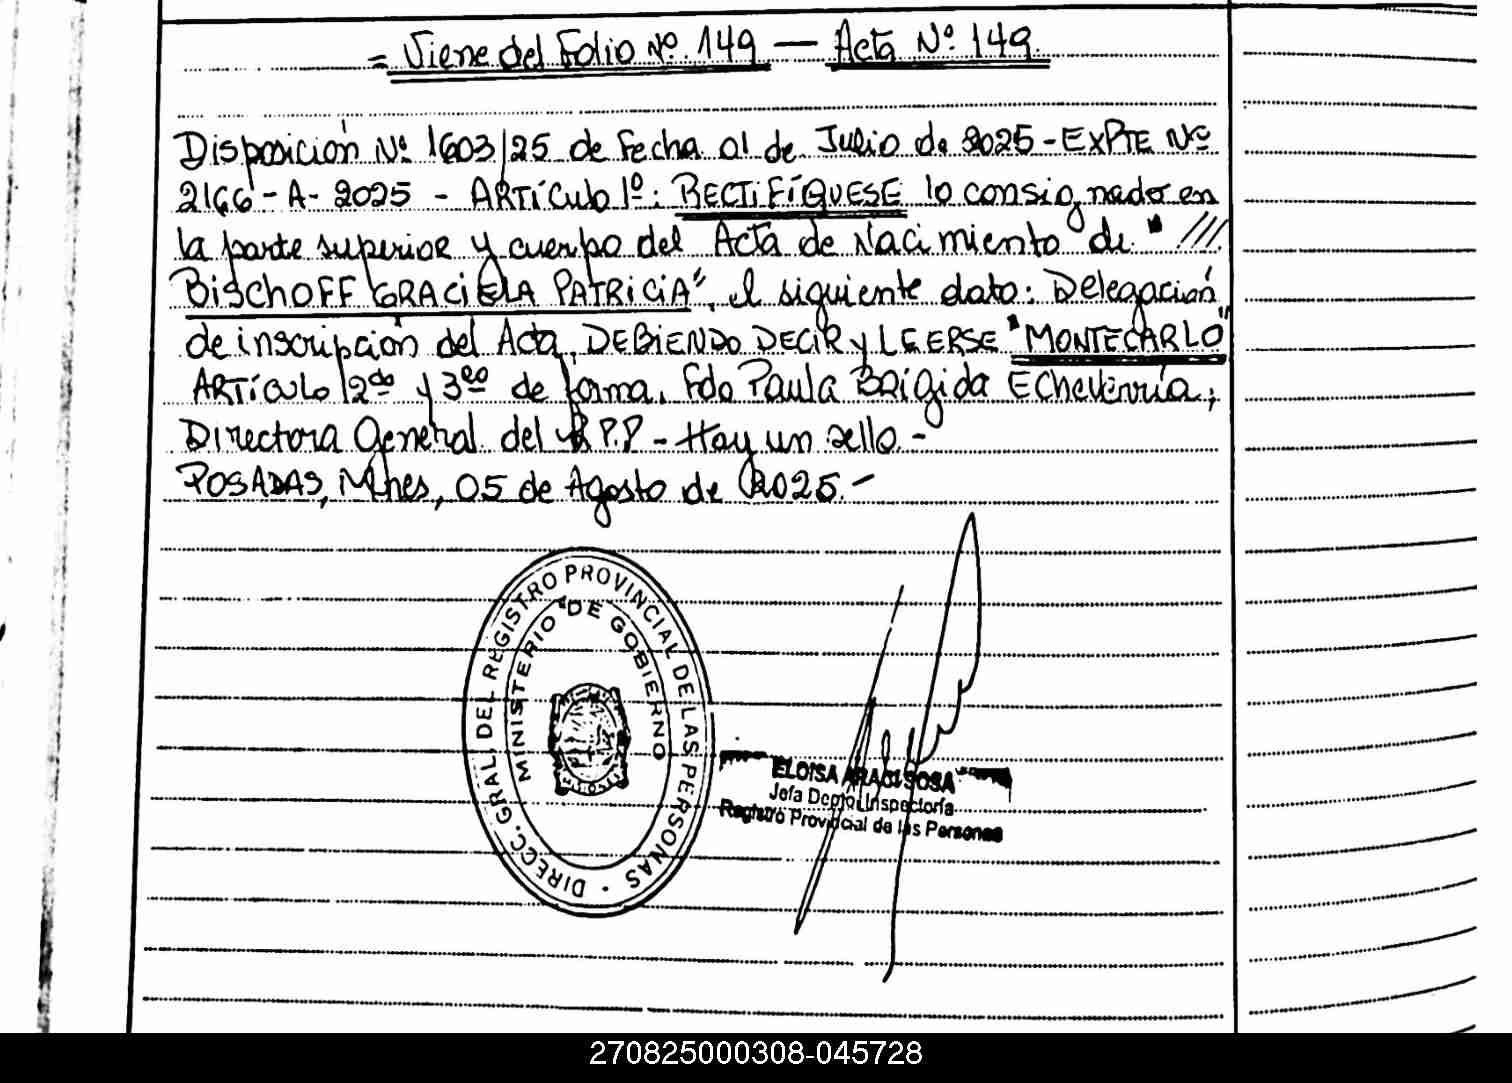 = Viene del Folio Nº 149 — Acta Nº 149
Disposición Nº 1603/25 de Fecha 01 de Julio de 2025 - EXPTE Nº
2166 - A - 2025 - ARTÍCULO 1º: RECTIFÍQUESE lo consignado en
la parte superior y cuerpo del Acta de Nacimiento de " ///
BISCHOFF GRACIELA PATRICIA", el siguiente dato: Delegación
de inscripción del Acta, DEBIENDO DECIR y LEERSE "MONTECARLO"
ARTÍCULO 2do y 3ro de forma. Fdo Paula Brígida Echeverría;
Directora General del R.P.P - Hay un sello.-
POSADAS, Mnes, 05 de Agosto de 2025.-
DIRECC. GRAL. DEL REGISTRO PROVINCIAL DE LAS PERSONAS
MINISTERIO DE GOBIERNO
ELOISA ARACI SOSA
Jefa Depto. Inspectoría
Registro Provincial de las Personas
270825000308-045728